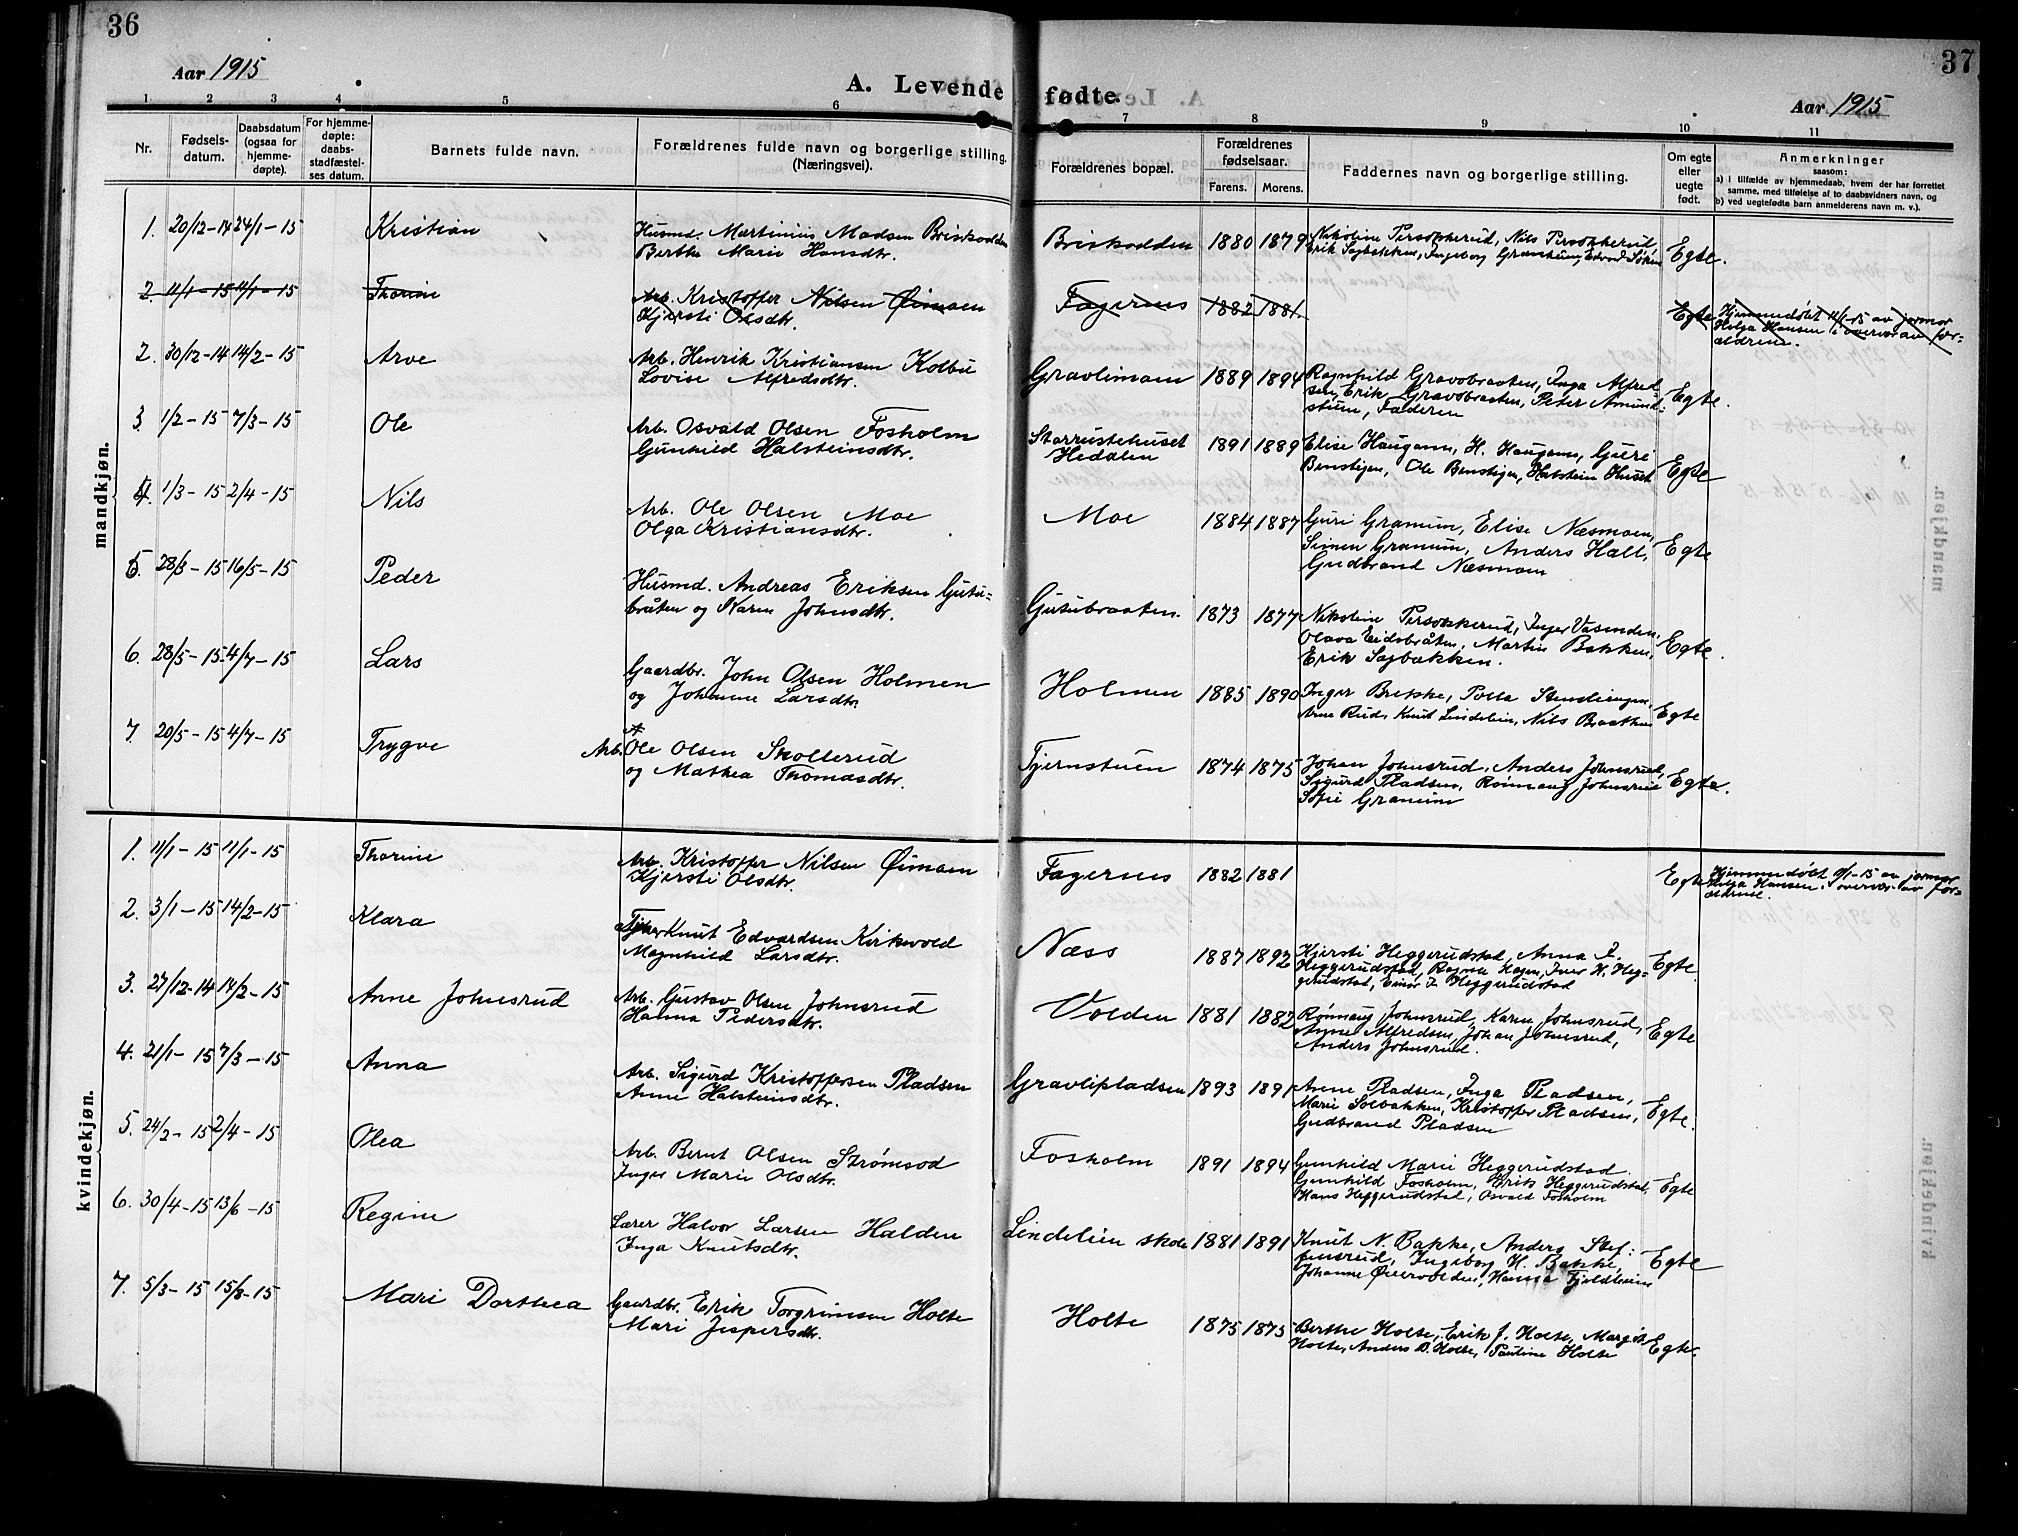 36
Aar 1915
A. Levende fødte.
Aar 1915
37
1 2 3 4 5 6 7 8 9 10 11
Nr.
Fødsels-
datum.
Daabsdatum
(ogsaa for
hjemme-
døpte).
For hjemme-
døpte:
daabs-
stadfæstel-
ses datum.
Barnets fulde navn.
Forældrenes fulde navn og borgerlige stilling.
(Næringsvei).
Forældrenes bopæl.
Forældrenes
fødselsaar.
Farens. Morens.
Faddernes navn og borgerlige stilling.
Om egte
eller
uegte
født.
Anmerkninger
saasom:
a) i tilfælde av hjemmedaab, hvem der har forrettet
samme, med tilføielse af to daabsvidners navn, og
b) ved uegtefødte barn anmelderens navn m. v.).
mandkjøn.
1. 20/12-14 24/1-15 Kristian Husmd. Martinius Madsen Briskodden
Berthe Marie Hansdtr.
Briskodden 1880 1879 Nikoline Persokkerud, Nils Persokkerud,
Erik Sagbakken, Ingeborg Granheim, Edvard Søken Egte.
2. 11/1-15 11/1-15 Thorine Arb. Kristoffer Nilsen Øimoen
Kjersti Olsdtr.
Fagernes 1882 1881. Egte Hjemmedøbt 11/1-15 av jormor
Helga Hansen i overvær av for-
ældrene.
2. 30/12-14 14/2-15 Arve Arb. Henrik Kristiansen Kolbu
Lovise Alfredsdtr.
Gravlimoen 1889 1894 Ragnhild Gravobraaten, Inga Alfred
sen, Erik Gravobraaten, Peter Amund-
stuen, Faderen Egte.
3. 1/2-15 7/3-15 Ole Arb. Osvald Olsen Fosholm
Gunhild Halsteinsdtr.
Storrustehuset
Hedalen 1891 1889 Elise Haugann, H. Haugann, Guri
Benstigen, Ole Benstigen, Halstein Huset Egte
4. 1/3-15 2/4-15 Nils Arb. Ole Olsen Moe
Olga Kristiansdtr.
Moe 1884 1887 Guri Granum, Elise Næsmoen,
Simen Granum, Anders Hall,
Gudbrand Næsmoen Egte
5. 28/3-15 16/5-15 Peder Husmd. Andreas Eriksen Gutu-
bråten og Karen Johnsdtr.
Gutubraaten. 1873 1877 Nikoline Persokkerud, Inger Vasenden,
Olava Eidsbråten, Martin Bakken,
Erik Sagbakken. Egte.
6. 28/5-15 4/7-15 Lars Gaardbr. John Olsen Holmen
og Johanne Larsdtr.
Holmen 1885 1890 Inger Brekke, Polla Stendiengen,
Arne Rud, Knut Lindelien, Nils Braathen Egte
7. 20/5-15 4/7-15 Trygve Arb. Ole Olsen Skollerud
og Mathea Thomasdtr.
Tjernstuen 1874 1875 Johan Johnsrud, Anders Johnsrud,
Sigurd Pladsen, Rønnaug Johnsrud
Sofie Granum Egte.
kvindekjøn.
1. 11/1-15 11/1-15 Thorine Arb. Kristoffer Nilsen Øimoen
Kjersti Olsdtr.
Fagernes 1882 1881 Egte Hjemmedøbt 11/1-15 av jormor
Helga Hansen i overvær av for-
ældrene.
2. 3/1-15 14/2-15 Klara Knut Edvardsen Kirkevold
Magnhild Larsdtr.
Næss 1887 1892 Kjersti Heggerudstad, Anna I.
Heggerudstad, Ragna Hagen, Iver K. Heg-
gerudstad, Einar I. Heggerudstad Egte
3. 27/12-14 14/2-15 Anne Johnsrud Arb. Gustav Olsen Johnsrud
Hanna Pedersdtr.
Volden 1881 1882 Rønnaug Johnsrud, Karen Johnsrud,
Anne Alfredsen, Johan Johnsrud,
Anders Johnsrud. Egte
4. 21/1-15 7/3-15 Anna Arb. Sigurd Kristoffersen Pladsen
Anne Halsteinsdtr.
Gravlipladsen 1893 1891 Anne Pladsen, Inga Pladsen,
Marie Solbakken, Kristoffer Pladsen,
Gudbrand Pladsen Egte.
5. 24/2-15 2/4-15 Olea Arb. Bernt Olsen Strømsod
Inger Marie Olsdtr.
Fosholm 1891 1894 Gunhild Marie Heggerudstad.
Gunhild Fosholm, Brita Heggerudstad,
Hans Heggerudstad, Osvald Fosholm Egte
6. 30/4-15 13/6-15 Regine Lærer Halvor Larsen Halden
Inga Knutsdtr.
Lindelien skole 1881 1891 Knut N. Bakke, Anders Stef-
fensrud, Ingeborg H. Bakke,
Johanne Øvervolden, Hanna Fjeldheim Egte
7. 5/3-15 15/8-15 Mari Dorthea Gaardbr. Erik Torgrimsen Holte
Mari Jespersdtr.
Holte 1875 1875 Berthe Holte, Erik J. Holte, Margit
Holte, Anders D. Holte, Pauline Holte Egte.